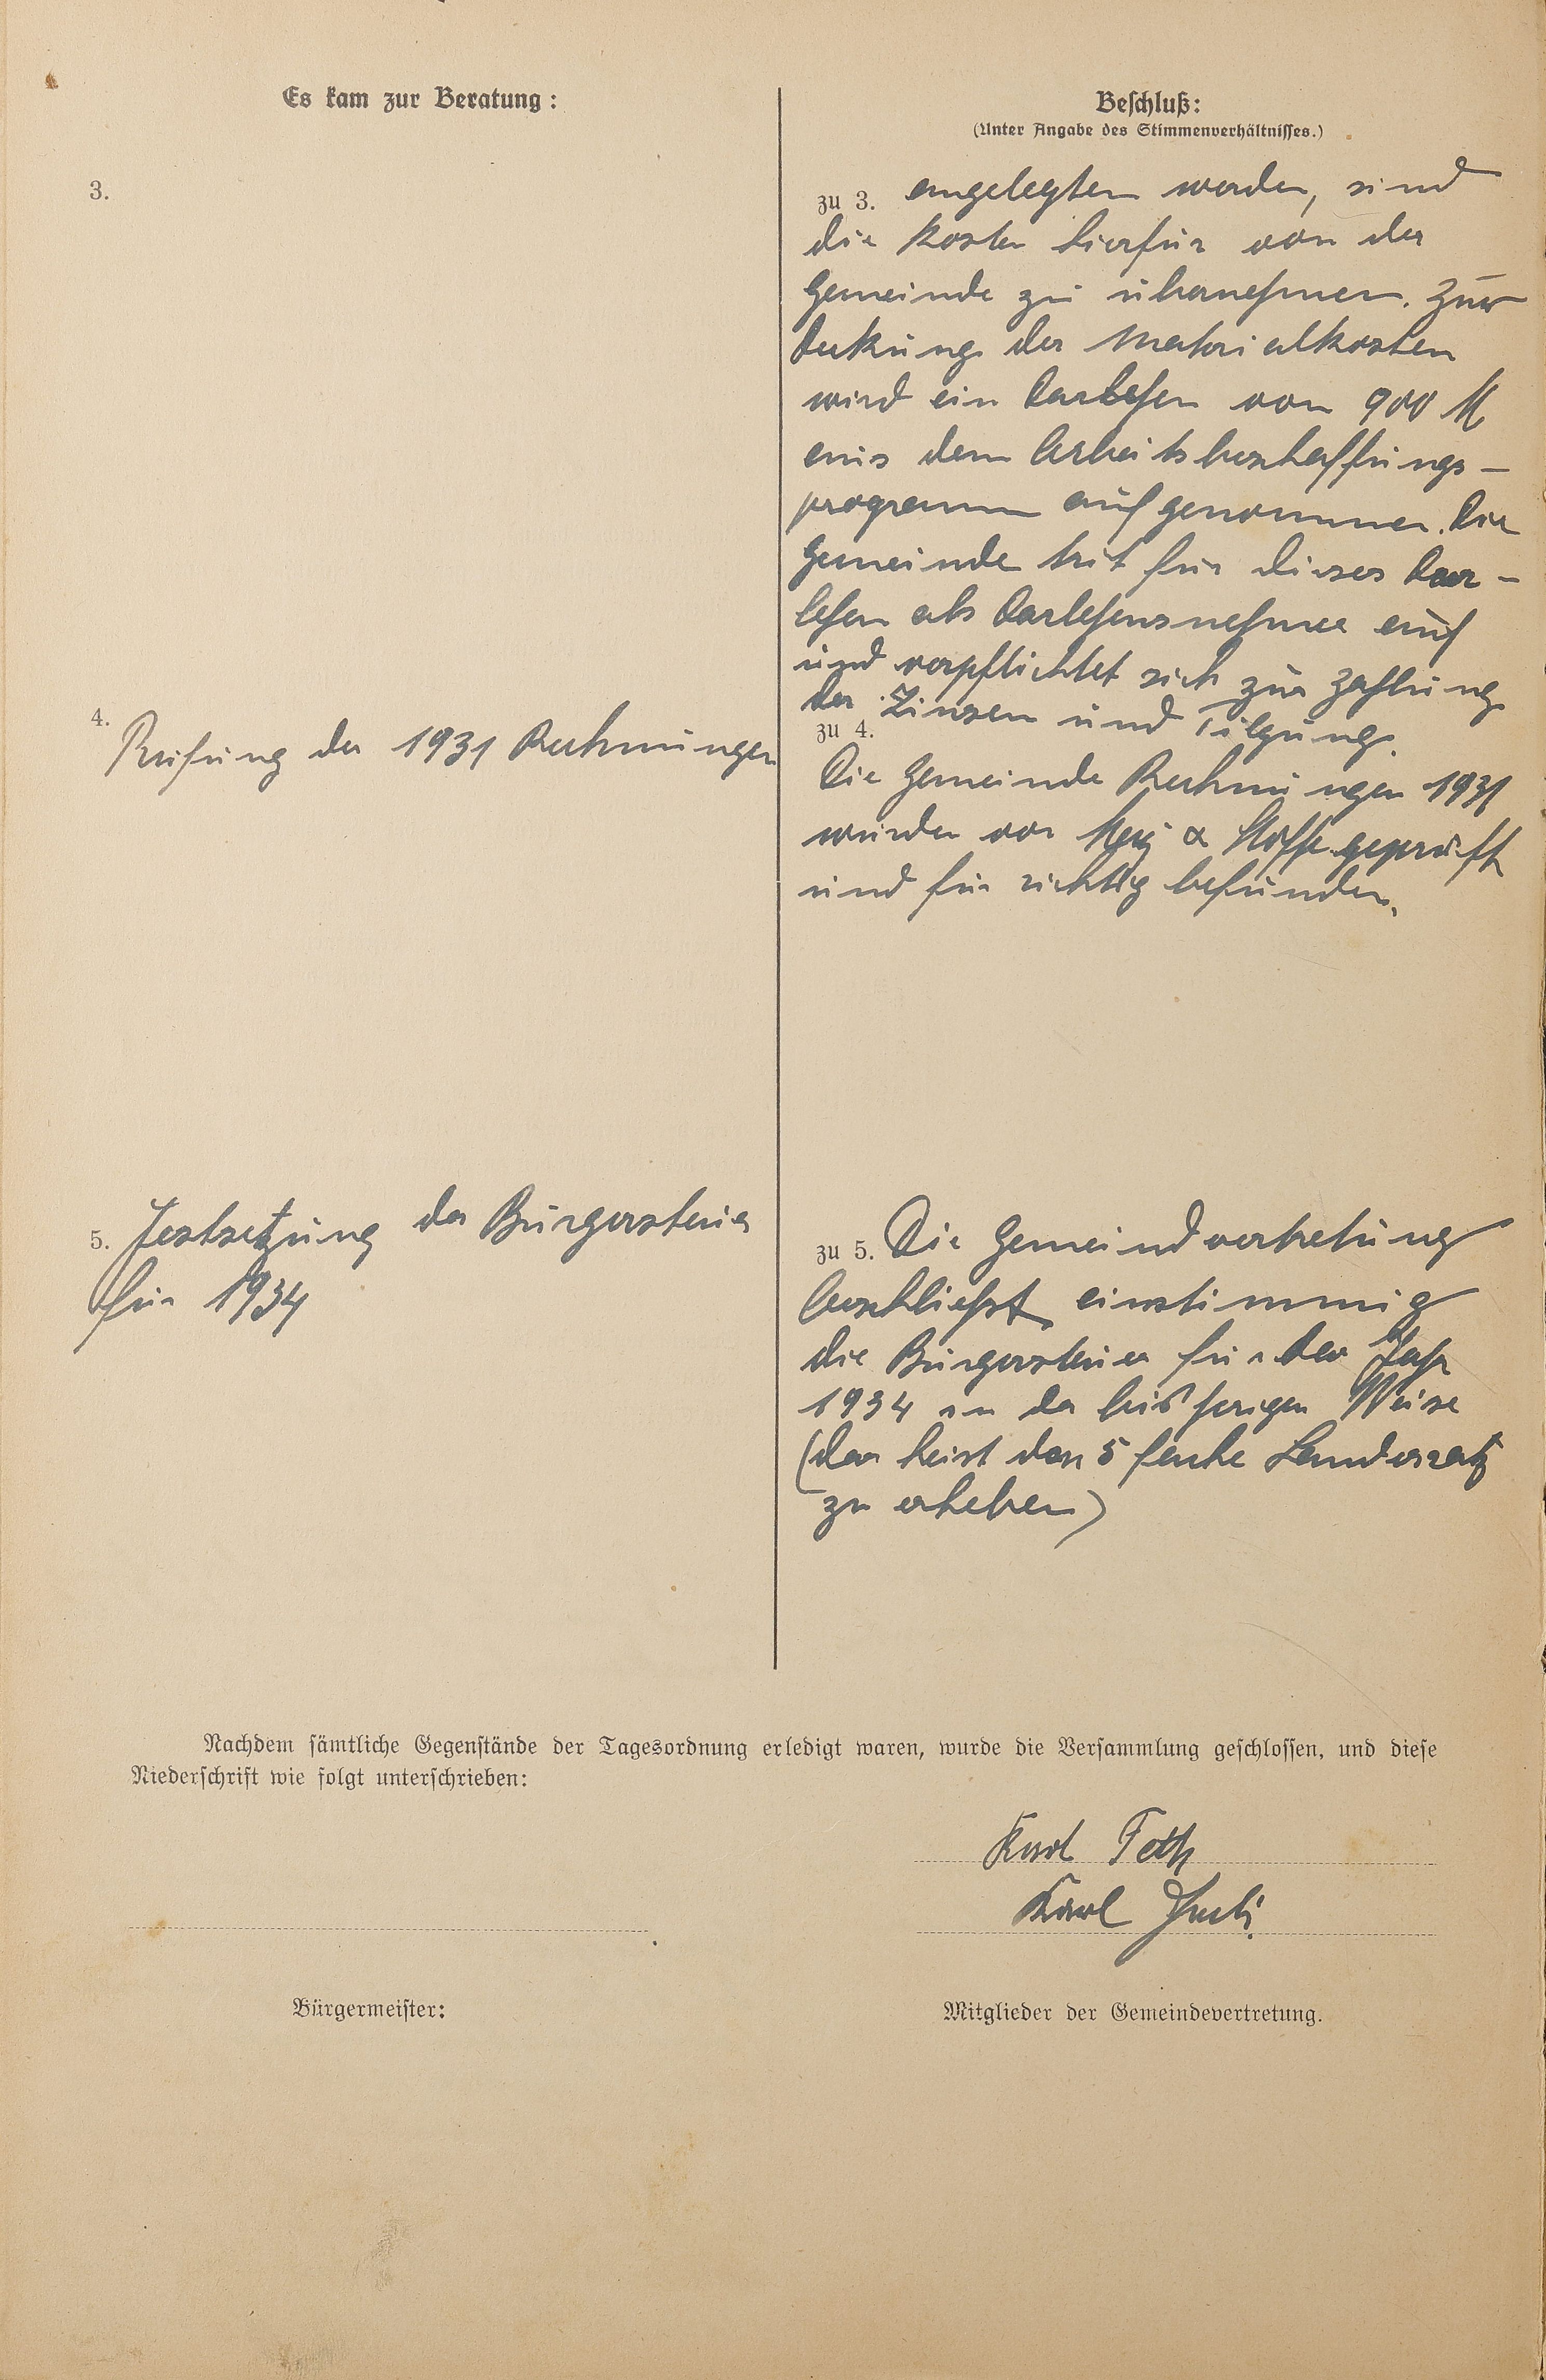 Es kam zur Beratung:
3.
4. Prüfung der 1931 Rechnungen
5. Festsetzung der Bürgersteuer
für 1934
Beschluß:
(Unter Angabe des Stimmenverhältnisses.)
zu 3. angelegten werden, sind
die Kosten hierfür von der
Gemeinde zu übernehmen. Zur
Deckung der Materialkosten
wird ein Darlehen von 900 M
aus dem Arbeitsbeschaffungs-
programm aufgenommen. Die
Gemeinde trit für dieses Dar-
lehen als Darlehensnehmer auf
und verpflichtet sich zur Zahlung
der Zinsen und Tilgung.
zu 4.
Die Gemeinde Rechnungen 1931
wurden von & geprüft
und für richtig befunden.
zu 5. Die Gemeindvertretung
beschließt einstimmig
die Bürgersteuer für das Jahr
1934 in der bisherigen Weise
(das heist den 5 fache Landessatz
zu erheben)
Nachdem sämtliche Gegenstände der Tagesordnung erledigt waren, wurde die Versammlung geschlossen, und diese
Niederschrift wie folgt unterschrieben:
Karl Feth
Karl
Bürgermeister:
Mitglieder der Gemeindevertretung.